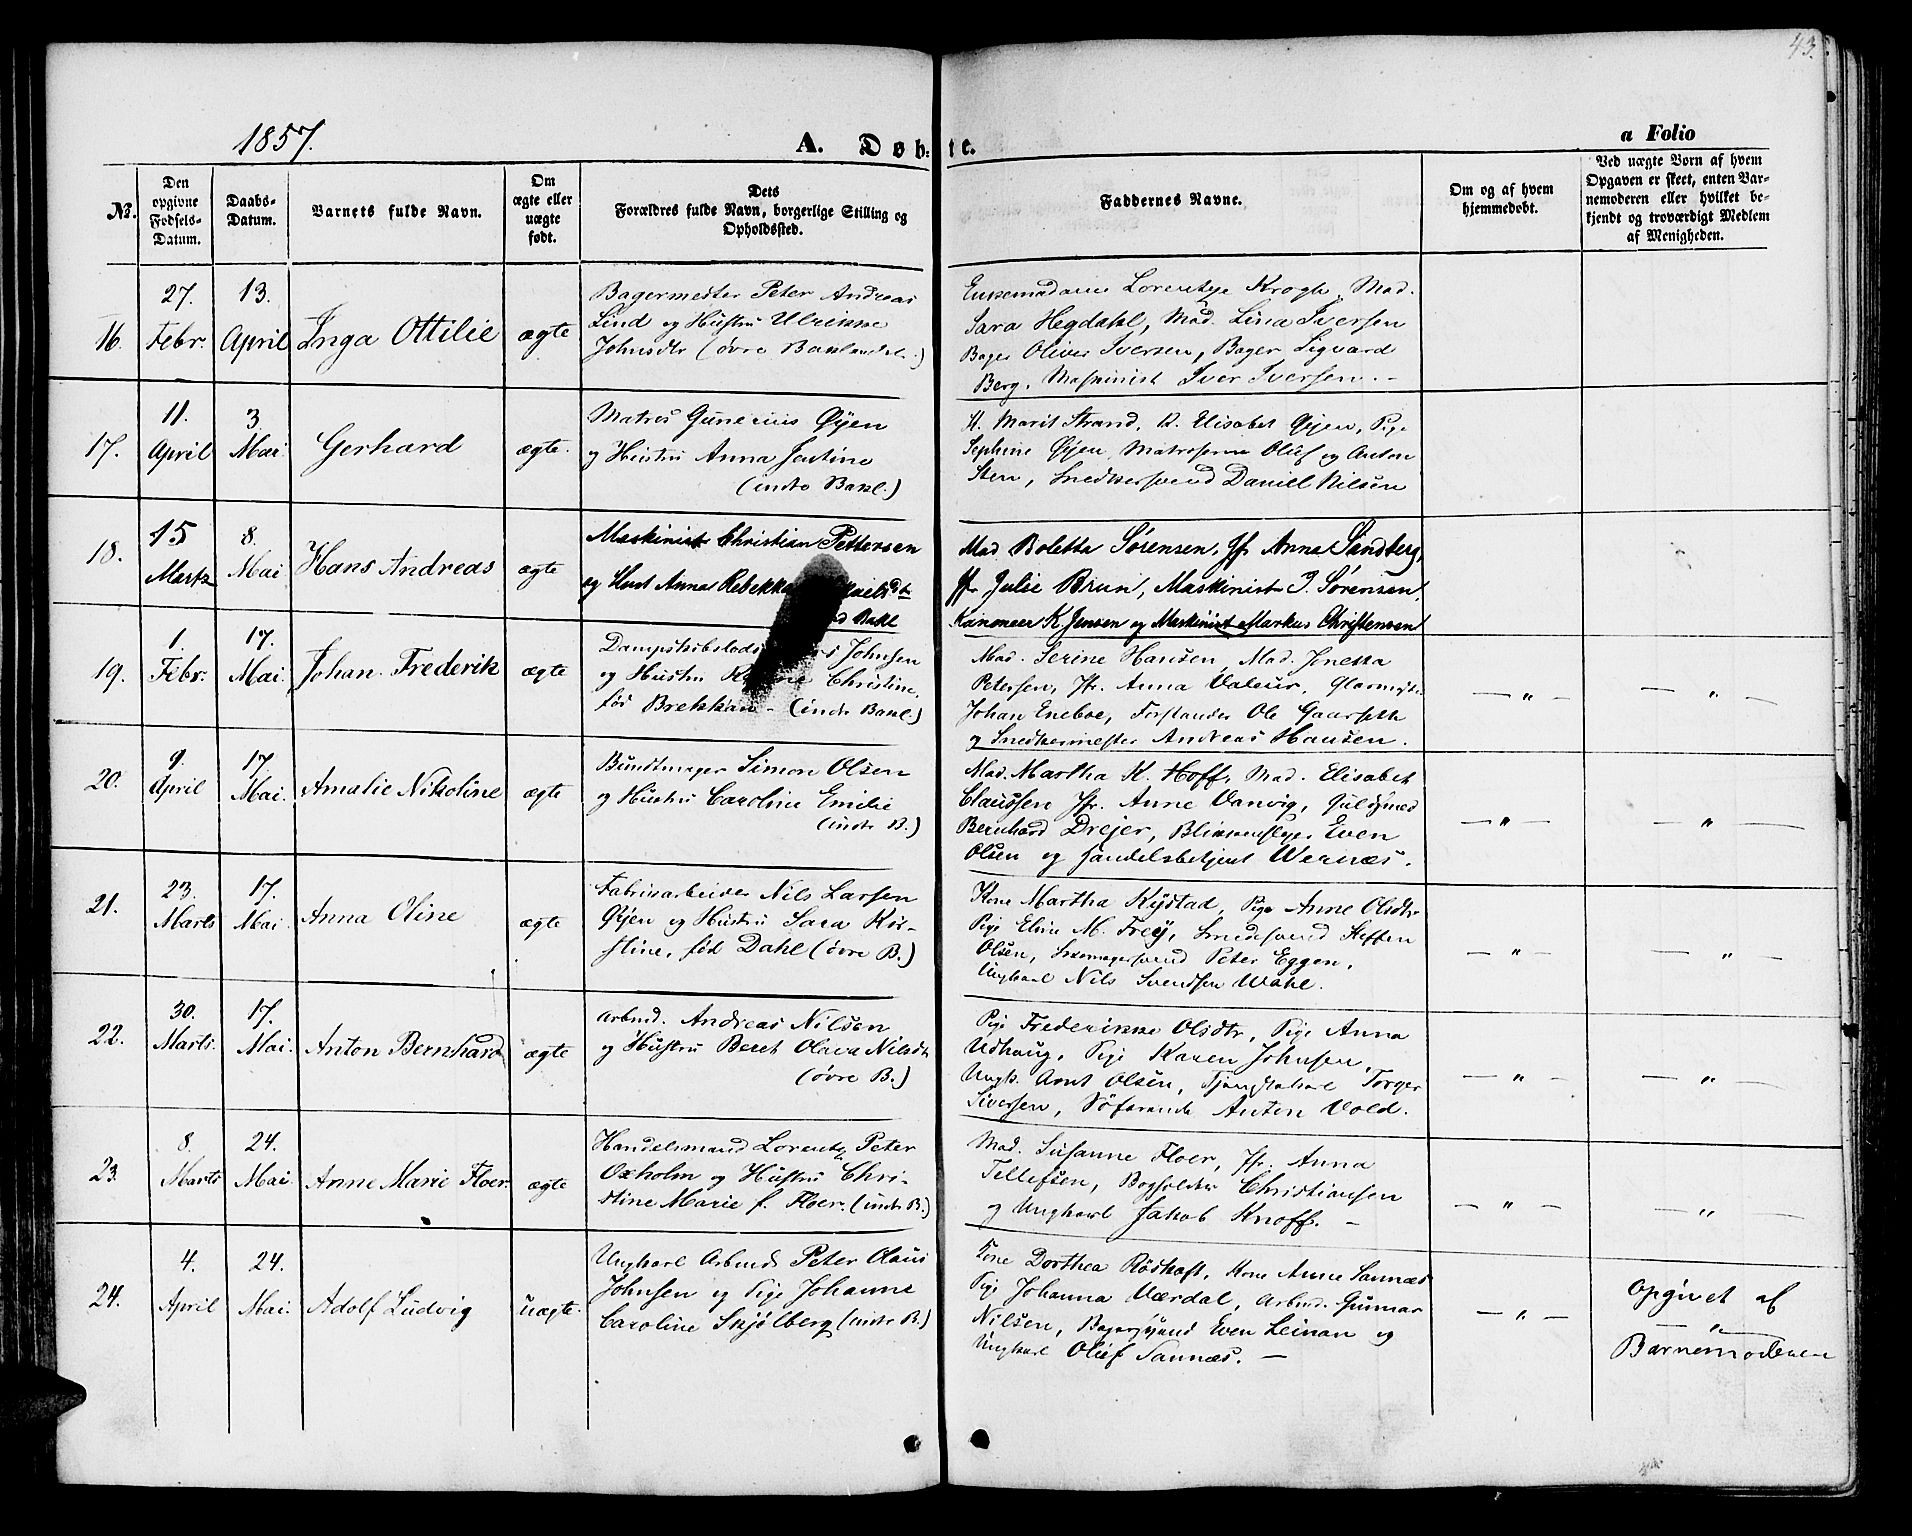 43.
1857.
A. Døb-te.
a Folio
No.
Den opgivne Fødsels-Datum.
Daabs-Datum.
Barnets fulde Navn.
Om ægte eller uægte født.
Dets Forældres fulde Navn, borgerlige Stilling og Opholdssted.
Faddernes Navne.
Om og af hvem hjemmedøbt.
Ved uægte Børn af hvem Opgaven er skeet, enten Barnemoderen eller hvilket bekjendt og troværdigt Medlem af Menigheden.
16.
27. Febr.
13. April
Inga Ottilie
ægte
Bagermester Peter Andreas
Lind og Hustru Ulrikke
Johnsdtr (øvre Baklandet.)
Enkemadame Lorentze Krogh, Mad.
Sara Hegdahl, Mad. Lina Iversen
Bager Oliver Iversen, Bager Sigvard
Berg, Maskinist Iver Iversen. -
17.
11. April
3. Mai.
Gerhard
ægte.
Matros Gunerius Øyen
og Hustru Anna Justine
(indre Bakl.)
K. Marit Strand, K. Elisabet Øyen, Pige
Sephine Øyen, Matroserne Oluf og Anton
Sten, Snedkersvend Daniel Nilsen
18.
15 Marts
8. Mai
Hans Andreas
ægte
Maskinist Christian Pettersen
og Hust Anna Rebekka
Bakl
Mad Boletta Sørensen, Jf Anna Sandberg,
Jfr Julie Brun, Maskinist J. Sørensen,
Kanoneer K. Jensen og Maskinist Markus Christensen
19.
1. Febr.
17. Mai.
Johan Frederik
ægte
Johnsen
og Hustru Christine,
fød Brekkan - (indre Bakl.)
Mad. Serine Hansen, Mad. Jenekka
Petersen, Jfr. Anna Valeur, Glarmester
Johan Eneboe, Forstander Ole Gaarseth
og Snedkermester Andreas Hansen.
— " —
— " —
20.
9. April
17. Mai.
Amalie Nikoline
ægte
Bundtmager Simon Olsen
og Hustru Caroline Emilie
(indre B.)
Mad. Martha K. Hoff, Mad. Elisabet
Claussen Jfr. Anne Vanvig, Guldsmed
Bernhard Drejer, Blikkenslager Even
Olsen og Handelsbetjent Wernæs.
— " —
— " —
21.
23. Marts
17. Mai
Anna Oline
ægte
Fabrikarbeider Nils Larsen
Øyen og Hustru Sara Kir-
stine, fød Dahl (øvre B.)
Kone Martha Kystad, Pige Anne Olsdtr
Pige Eline M. Frey, Smedesvend Steffen
Olsen, Skomagersvend Peter Eggen,
Ungkarl Nils Svendsen Wahl.
— " —
— " —
22.
30. Marts.
17. Mai.
Anton Bernhard
ægte
Arbmd. Andreas Nilsen
og Hustru Beret Olava Nilsdtr
(øvre B.)
Pige Frederikke Olsdtr, Pige Anna
Udhaug, Pige Karen Johnsen,
Ungk. Arnt Olsen, Tjenestekarl Torger
Sivertsen, Søfarende Anton Vold.
— " —
— " —
23.
8. Marts
24. Mai
Anne Marie Floer.
ægte
Handelsmand Lorents Peter
Oxholm og Hustru Chri-
stine Marie f. Floer. (indre B.)
Mad. Susanne Floer, Jfr. Anna
Tellefsen, Bogholder Christiansen
og Ungkarl Jakob Knoff. -
— " —
— " —
24.
4. April
24. Mai.
Adolf Ludvig
uægte.
Ungkarl Arbmd. Peter Olaus
Johnsen og Pige Johanne
Caroline Skjølberg (indre B.)
Kone Dorthea Rødhoft, Kone Anne Sannæs
Pige Johanna Værdal, Arbmd. Gunnar
Nilsen, Bagersvend Even Leinan og
Ungkarl Oluf Sannæs. —
— " —
Opgivet af
Barnemoderen